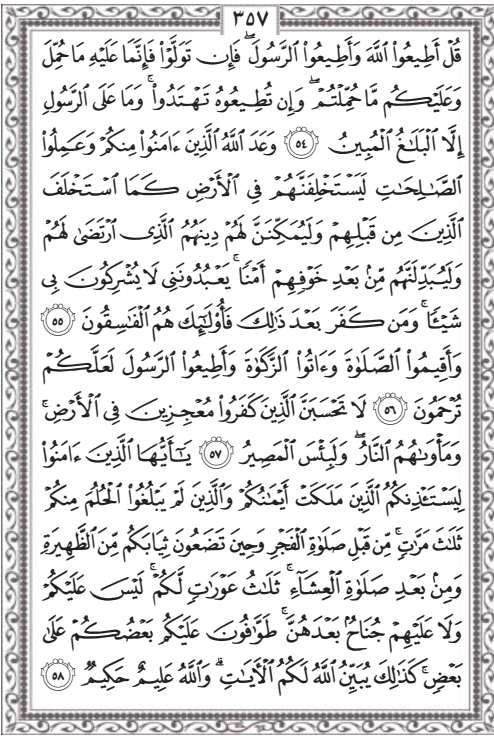 ٣٥٧
قُلْ أَطِيعُوا۟ ٱللَّهَ وَأَطِيعُوا۟ ٱلرَّسُولَ ۖ فَإِن تَوَلَّوْا۟ فَإِنَّمَا عَلَيْهِ مَا حُمِّلَ
وَعَلَيْكُم مَّا حُمِّلْتُمْ ۖ وَإِن تُطِيعُوهُ تَهْتَدُوا۟ ۚ وَمَا عَلَى ٱلرَّسُولِ
إِلَّا ٱلْبَلَـٰغُ ٱلْمُبِينُ ٥٤ وَعَدَ ٱللَّهُ ٱلَّذِينَ ءَامَنُوا۟ مِنكُمْ وَعَمِلُوا۟
ٱلصَّـٰلِحَـٰتِ لَيَسْتَخْلِفَنَّهُمْ فِى ٱلْأَرْضِ كَمَا ٱسْتَخْلَفَ
ٱلَّذِينَ مِن قَبْلِهِمْ وَلَيُمَكِّنَنَّ لَهُمْ دِينَهُمُ ٱلَّذِى ٱرْتَضَىٰ لَهُمْ
وَلَيُبَدِّلَنَّهُم مِّنۢ بَعْدِ خَوْفِهِمْ أَمْنًا ۚ يَعْبُدُونَنِى لَا يُشْرِكُونَ بِى
شَيْـًٔا ۚ وَمَن كَفَرَ بَعْدَ ذَٰلِكَ فَأُو۟لَـٰٓئِكَ هُمُ ٱلْفَـٰسِقُونَ ٥٥
وَأَقِيمُوا۟ ٱلصَّلَوٰةَ وَءَاتُوا۟ ٱلزَّكَوٰةَ وَأَطِيعُوا۟ ٱلرَّسُولَ لَعَلَّكُمْ
تُرْحَمُونَ ٥٦ لَا تَحْسَبَنَّ ٱلَّذِينَ كَفَرُوا۟ مُعْجِزِينَ فِى ٱلْأَرْضِ ۚ
وَمَأْوَىٰهُمُ ٱلنَّارُ ۖ وَلَبِئْسَ ٱلْمَصِيرُ ٥٧ يَـٰٓأَيُّهَا ٱلَّذِينَ ءَامَنُوا۟
لِيَسْتَـْٔذِنكُمُ ٱلَّذِينَ مَلَكَتْ أَيْمَـٰنُكُمْ وَٱلَّذِينَ لَمْ يَبْلُغُوا۟ ٱلْحُلُمَ مِنكُمْ
ثَلَـٰثَ مَرَّٰتٍ ۚ مِّن قَبْلِ صَلَوٰةِ ٱلْفَجْرِ وَحِينَ تَضَعُونَ ثِيَابَكُم مِّنَ ٱلظَّهِيرَةِ
وَمِنۢ بَعْدِ صَلَوٰةِ ٱلْعِشَآءِ ۚ ثَلَـٰثُ عَوْرَٰتٍ لَّكُمْ ۚ لَيْسَ عَلَيْكُمْ
وَلَا عَلَيْهِمْ جُنَاحٌۢ بَعْدَهُنَّ ۚ طَوَّٰفُونَ عَلَيْكُم بَعْضُكُمْ عَلَىٰ
بَعْضٍ ۚ كَذَٰلِكَ يُبَيِّنُ ٱللَّهُ لَكُمُ ٱلْـَٔايَـٰتِ ۗ وَٱللَّهُ عَلِيمٌ حَكِيمٌ ٥٨